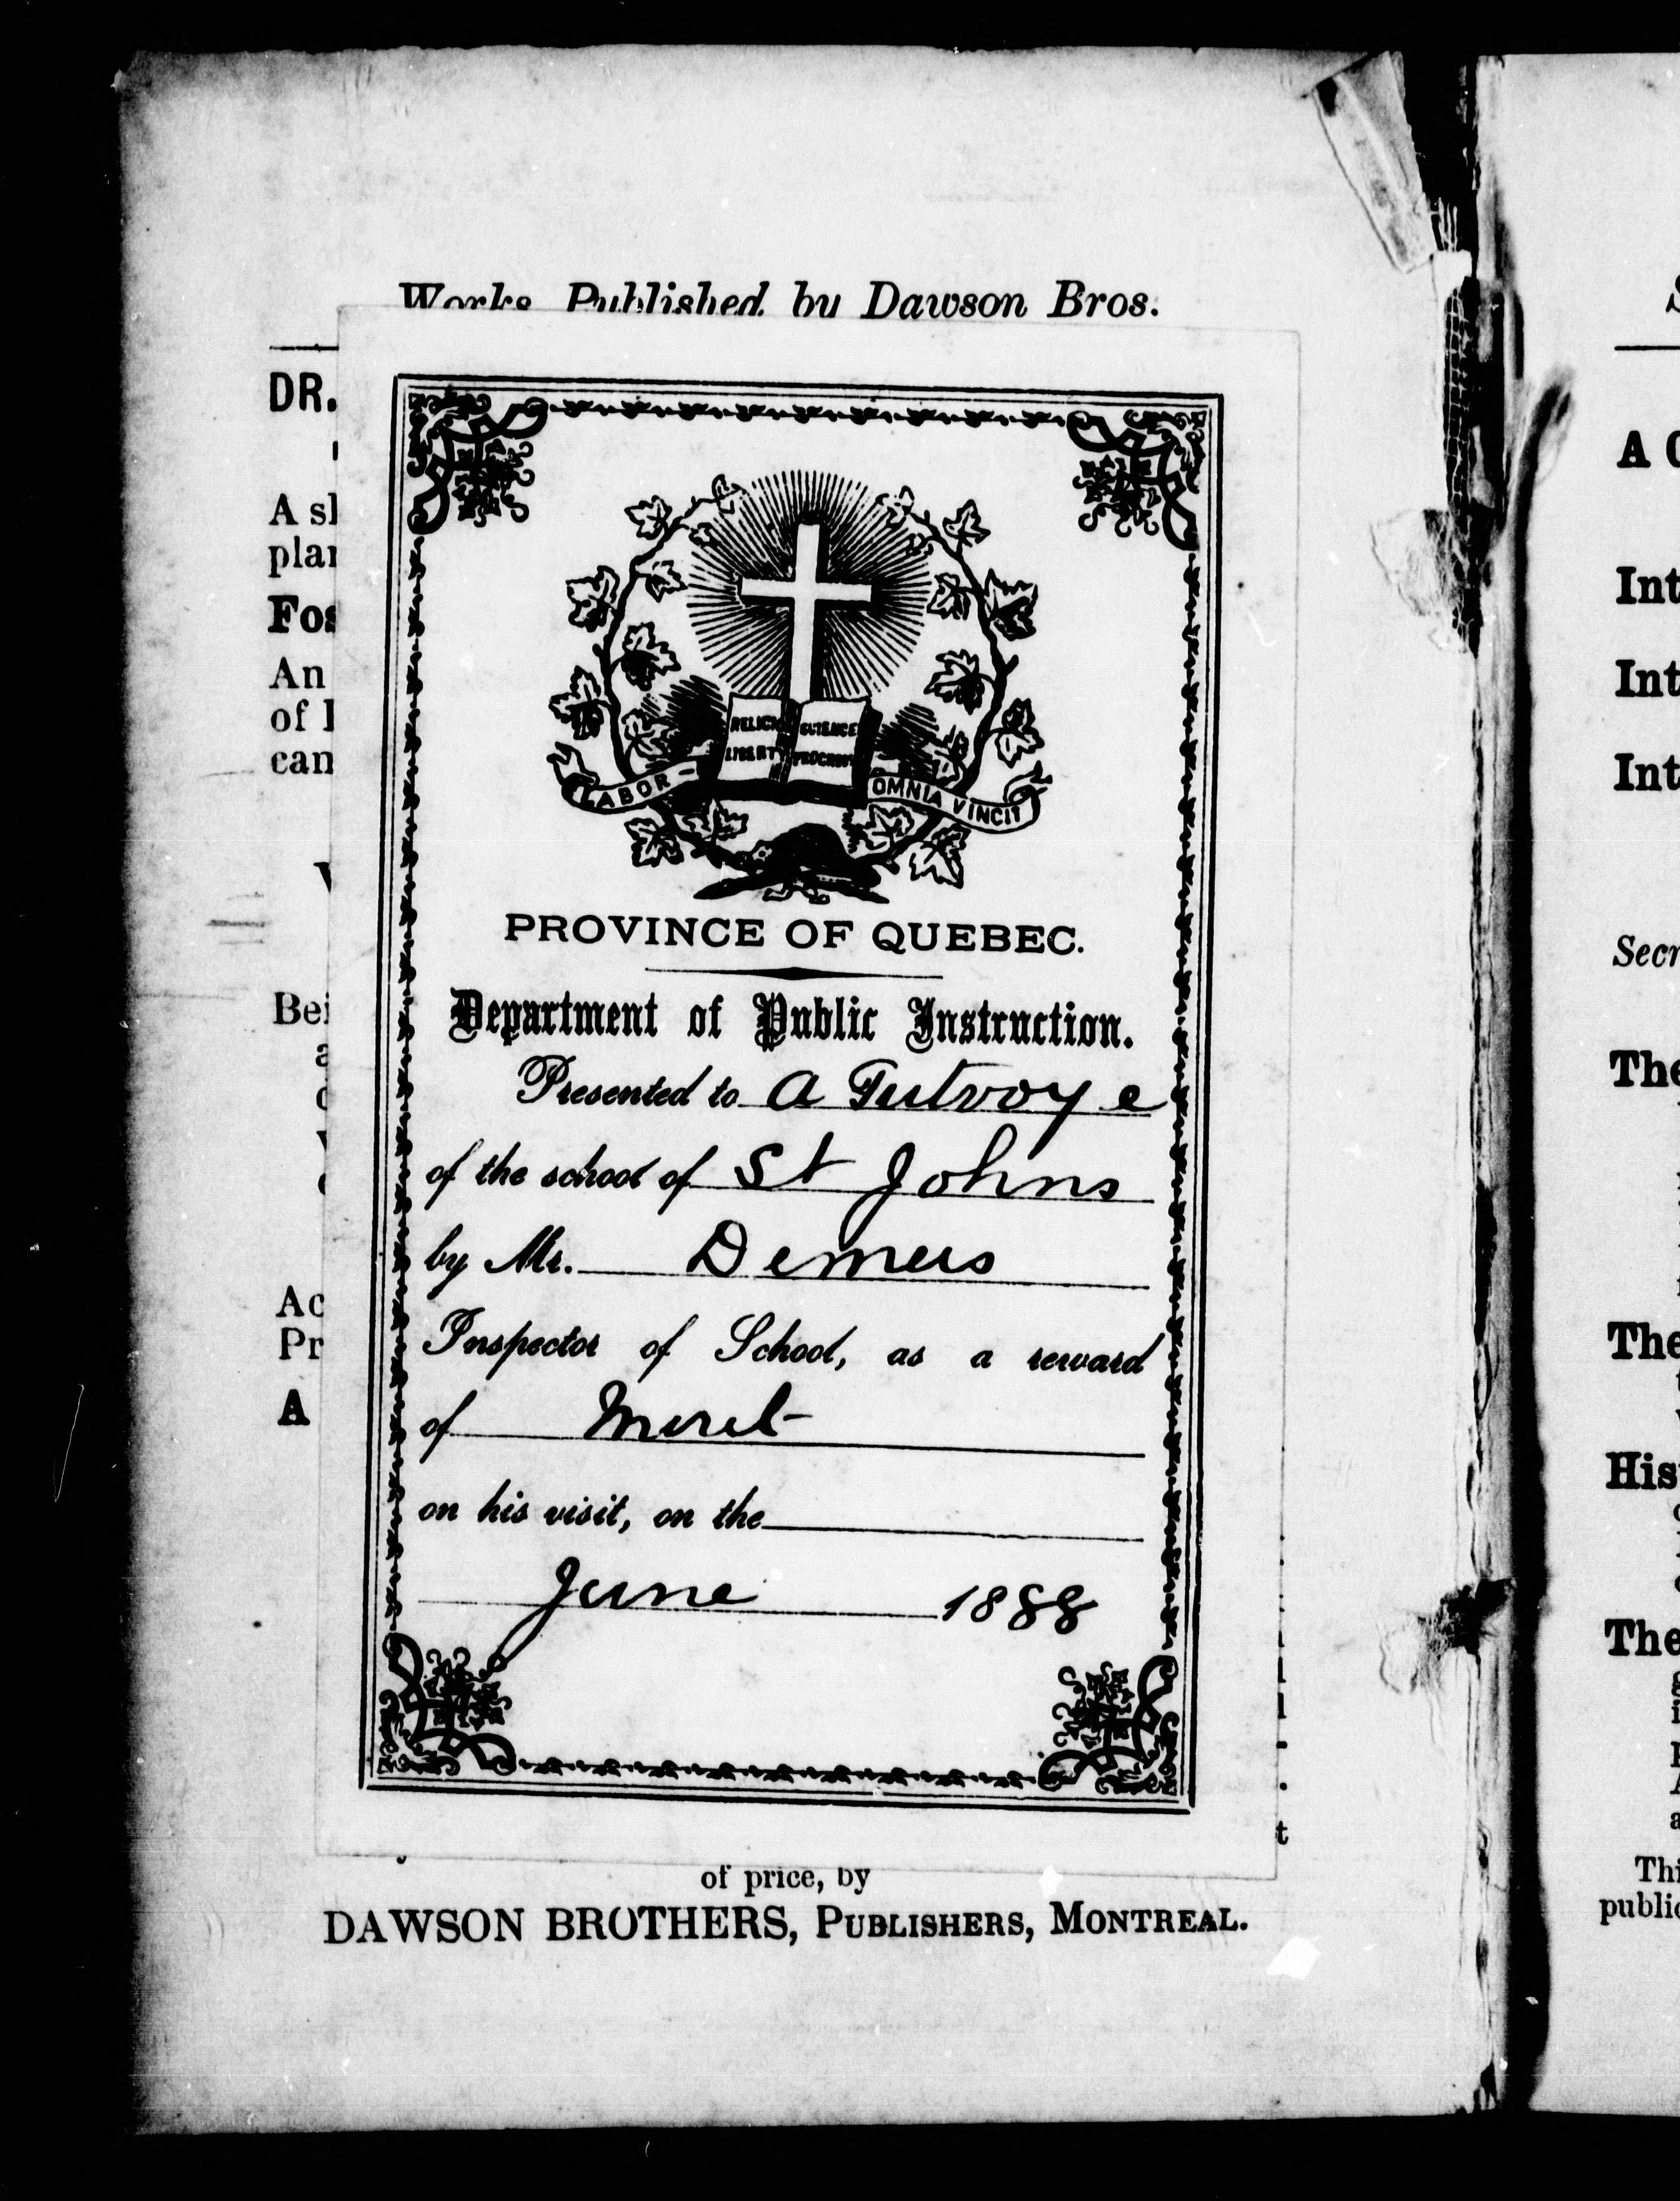 Works Published by Dawson Bros.
DR.
A
plan
Fos
An
of
can
RELIGION
LIBERTY
SCIENCE
PROGRESS
LABOR -
OMNIA VINCIT
PROVINCE OF QUEBEC.
Department of Public Instruction.
Presented to A Tutroye
of the school of St Johns
by Mr. Demers
Inspector of School, as a reward
of Merit
on his visit, on the
June 1888
Bei
Ac
Pr
A
t
of price, by
DAWSON BROTHERS, PUBLISHERS, MONTREAL.
A
Int
Int
Int
Secr
The
The
His
The
Thi
public